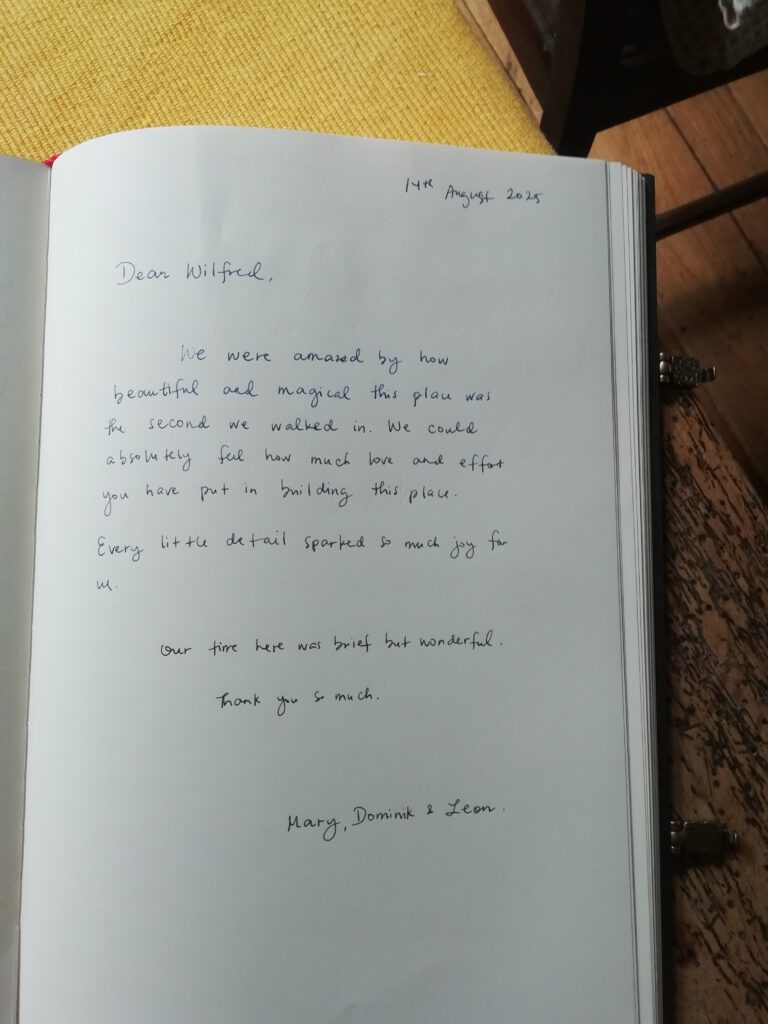 14th August 2025
Dear Wilfred,
We were amazed by how
beautiful and magical this place was
the second we walked in. We could
absolutely feel how much love and effort
you have put in building this place.
Every little detail sparked so much joy for
us.
Our time here was brief but wonderful.
Thank you so much.
Mary, Dominik & Leon.